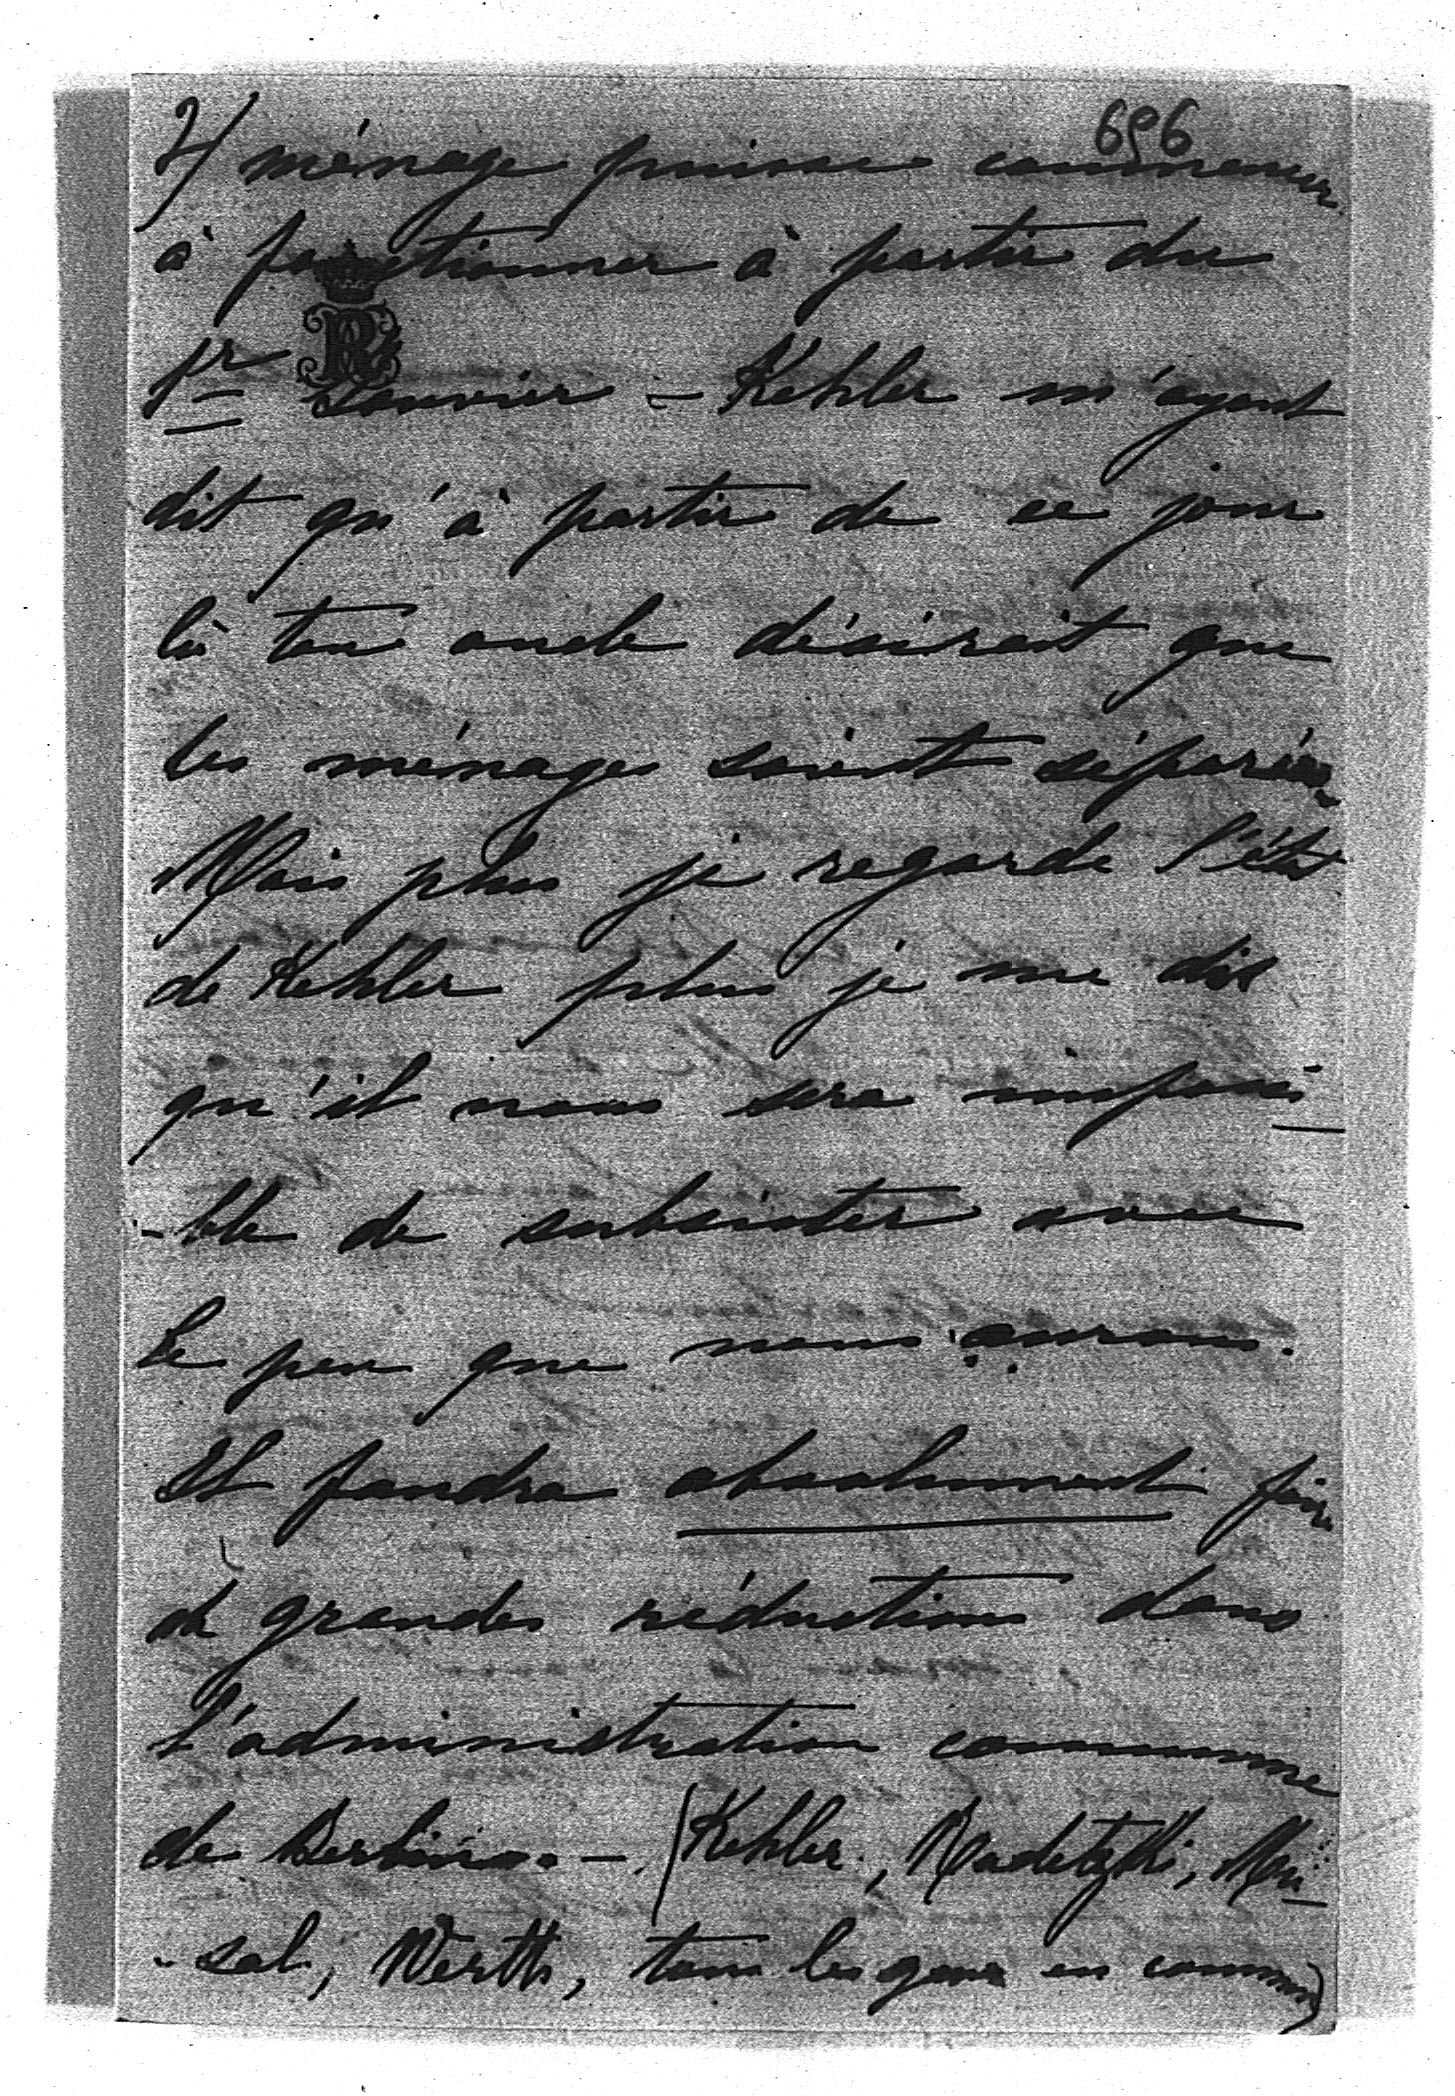 696
2/ ménage puisse commencer
à fonctionner à partir du
1r Janvier – Kehler m'ayant
dit qu'à partir de ce jour
là ton oncle désirait que
les ménages soient séparés.
Mais plus je regarde l'état
de Kehler plus je me dis
qu'il nous sera impossi-
-ble de subsister avec
le peu que nous aurons.
Il faudra absolument faire
de grandes réductions dans
l'administration commune
de Berlin. – (Kehler, Radetzki,
-sal, Werth, tous les gens en commun)